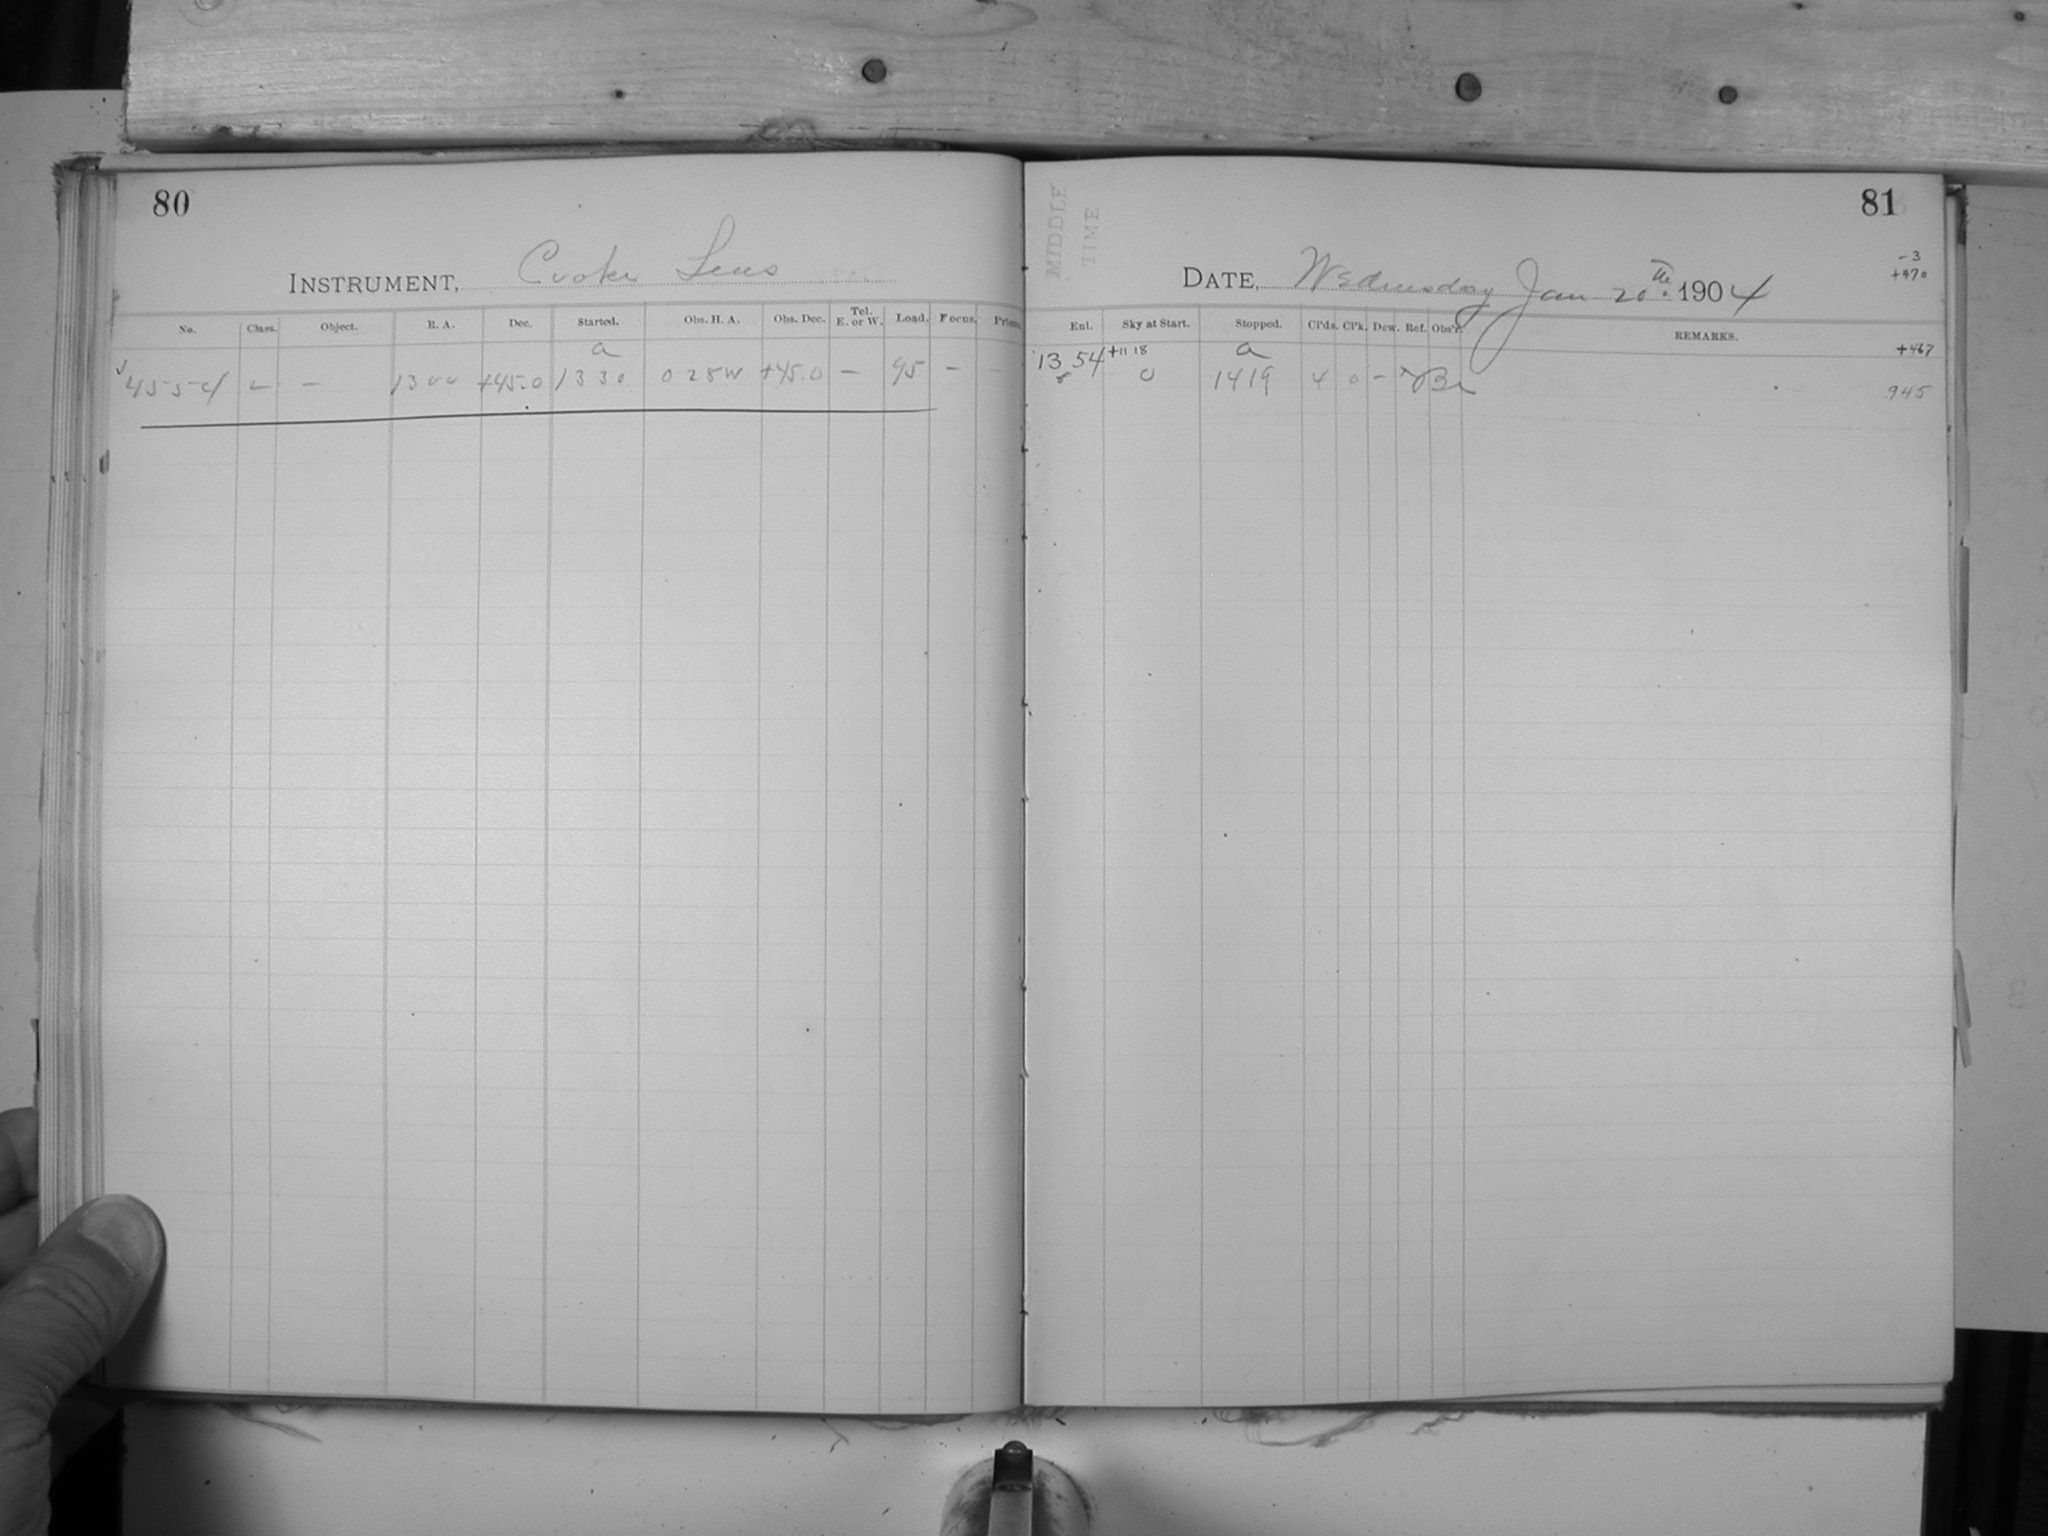 80
INSTRUMENT, Cooke Lens
No. Class. Object. R. A. Dec. Started. Obs. H. A. Obs. Dec. Tel. E. or W. Load. Focus. Prism.
a
4554 L — 1300 +45.0 1330 0 28 W +45.0 — 95 — —
81
MIDDLE
TIME
-3
+470
DATE, Wednesday Jan 20th. 1904
Enl. Sky at Start. Stopped. Cl'ds. Cl'k. Dew. Ref. Obs'r. REMARKS.
13 54 +11 18 a +467
0 1419 4 0 - Br 945